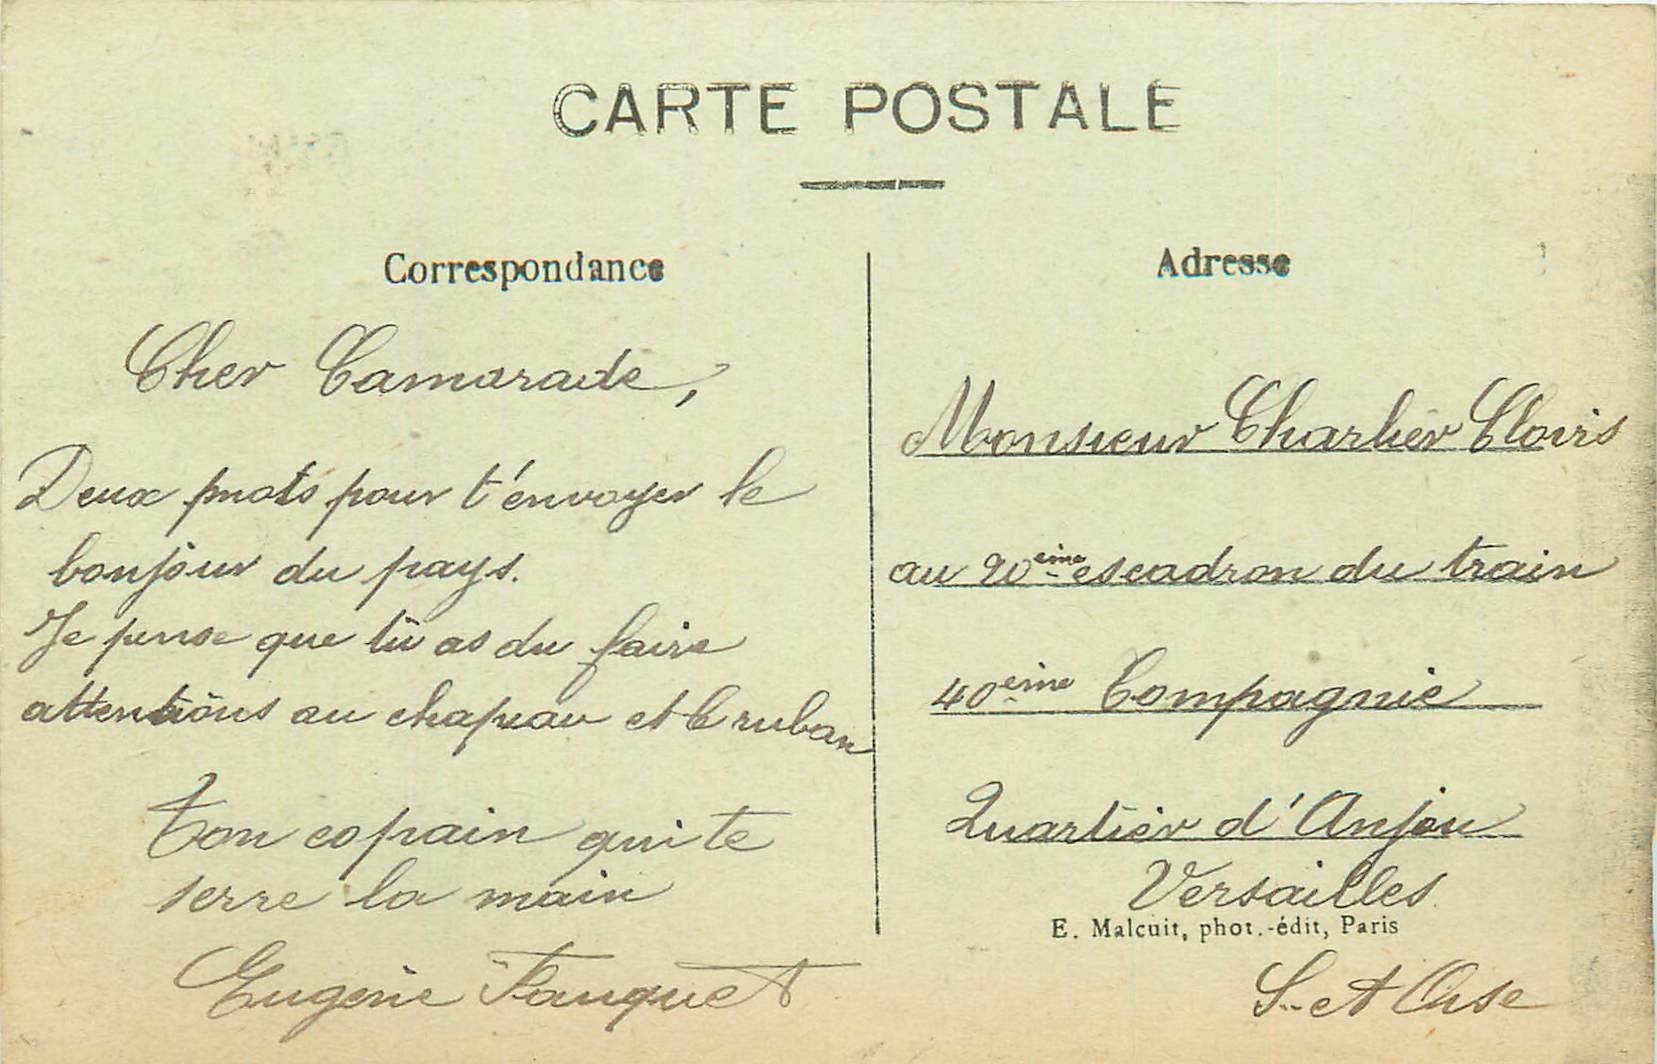 CARTE POSTALE
Correspondance
Cher Camarade,
Deux mots pour t'envoyer le
bonjour du pays.
Je pense que tu as du faire
attentions au chapeau et le ruban
Ton copain qui te
serre la main
Eugène Fauquet
Adresse
Monsieur Charlier Clovis
au 20ème escadron du train
40ème Compagnie
Quartier d'Anjou
Versailles
E. Malcuit, phot.-édit, Paris
S. et Oise